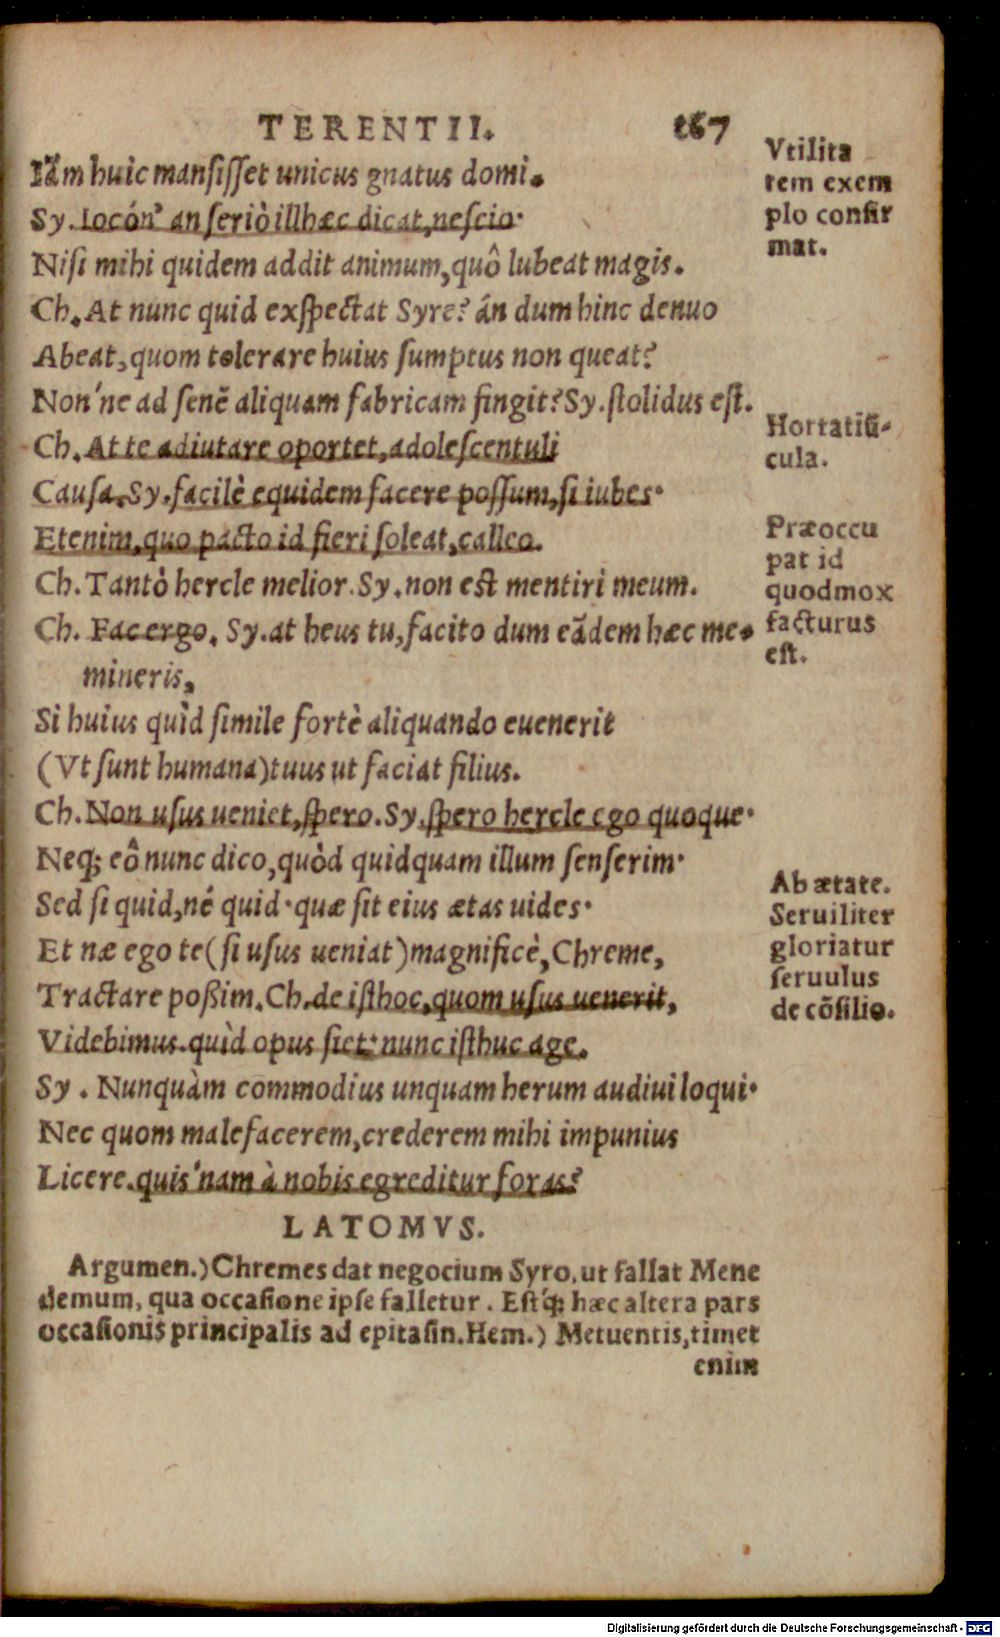 TERENTII. 167
Iãm huic mansisset unicus gnatus domi.
Sy. Iocón' an seriò illhæc dicat, nescio.
Nisi mihi quidem addit animum, quô lubeat magis.
Ch. At nunc quid exspectat Syre? án dum hinc denuo
Abeat, quom tolerare huius sumptus non queat?
Non'ne ad senẽ aliquam fabricam fingit? Sy. stolidus est.
Ch. At te adiutare oportet, adolescentuli
Causa. Sy. facilè equidem facere possum, si iubes.
Etenim, quo pacto id fieri soleat, calleo.
Ch. Tantò hercle melior. Sy. non est mentiri meum.
Ch. Fac ergo. Sy. at heus tu, facito dum eãdem hæc me-
mineris,
Si huius quìd simile fortè aliquando euenerit
(Vt sunt humana) tuus ut faciat filius.
Ch. Non usus ueniet, spero. Sy. spero hercle ego quoque.
Neq; eô nunc dico, quòd quidquam illum senserim.
Sed si quid, né quid. quæ sit eius ætas uides.
Et næ ego te (si usus ueniat) magnificè, Chreme,
Tractare poßim. Ch. de isthoc, quom usus uenerit,
Videbimus. quìd opus siet. nunc isthuc age.
Sy. Nunquàm commodius unquam herum audiui loqui.
Nec quom malefacerem, crederem mihi impunius
Licere. quis'nam à nobis egreditur foras?
LATOMVS.
Argumen.) Chremes dat negocium Syro, ut fallat Mene
demum, qua occasione ipse falletur. Estq́; hæc altera pars
occasionis principalis ad epitasin. Hem.) Metuentis, timet
enim
Vtilita
tem exem
plo confir
mat.
Hortatiũ-
cula.
Præoccu
pat id
quodmox
facturus
est.
Ab ætate.
Seruiliter
gloriatur
seruulus
de cõsilio.
Digitalisierung gefördert durch die Deutsche Forschungsgemeinschaft - DFG